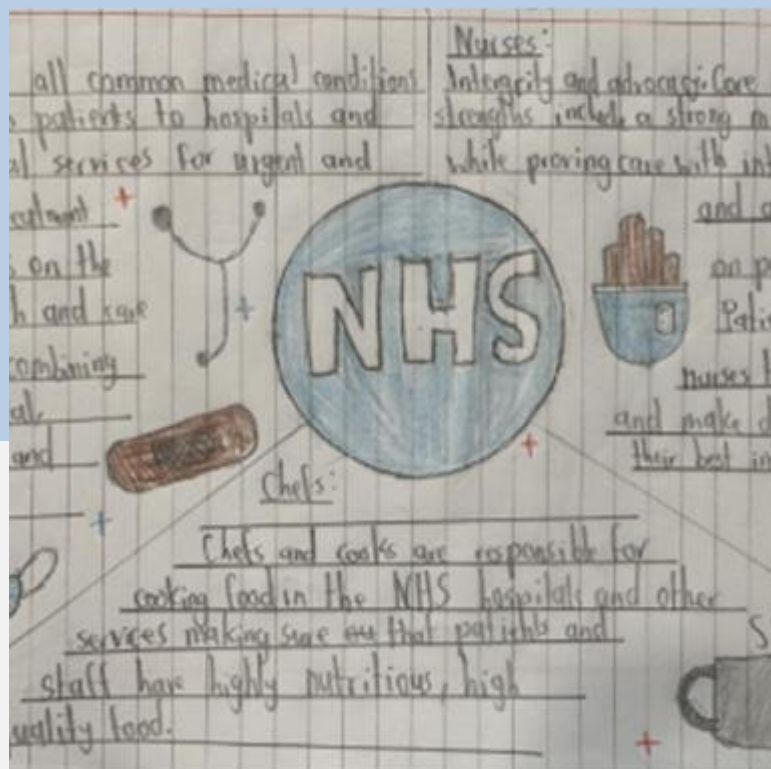 all common medical conditions
patients to hospitals and
services for urgent and
on the
and care
combining
and
Nurses:
Intergrity and advocacy. Care
strengths include a strong m
while proving care with int
and
on p
Patie
nurses
and make d
their best in
NHS
Chefs:
Chefs and cooks are responsible for
cooking food in the NHS hospitals and other
services making sure that patients and
staff have highly nutritious, high
uality food.
S